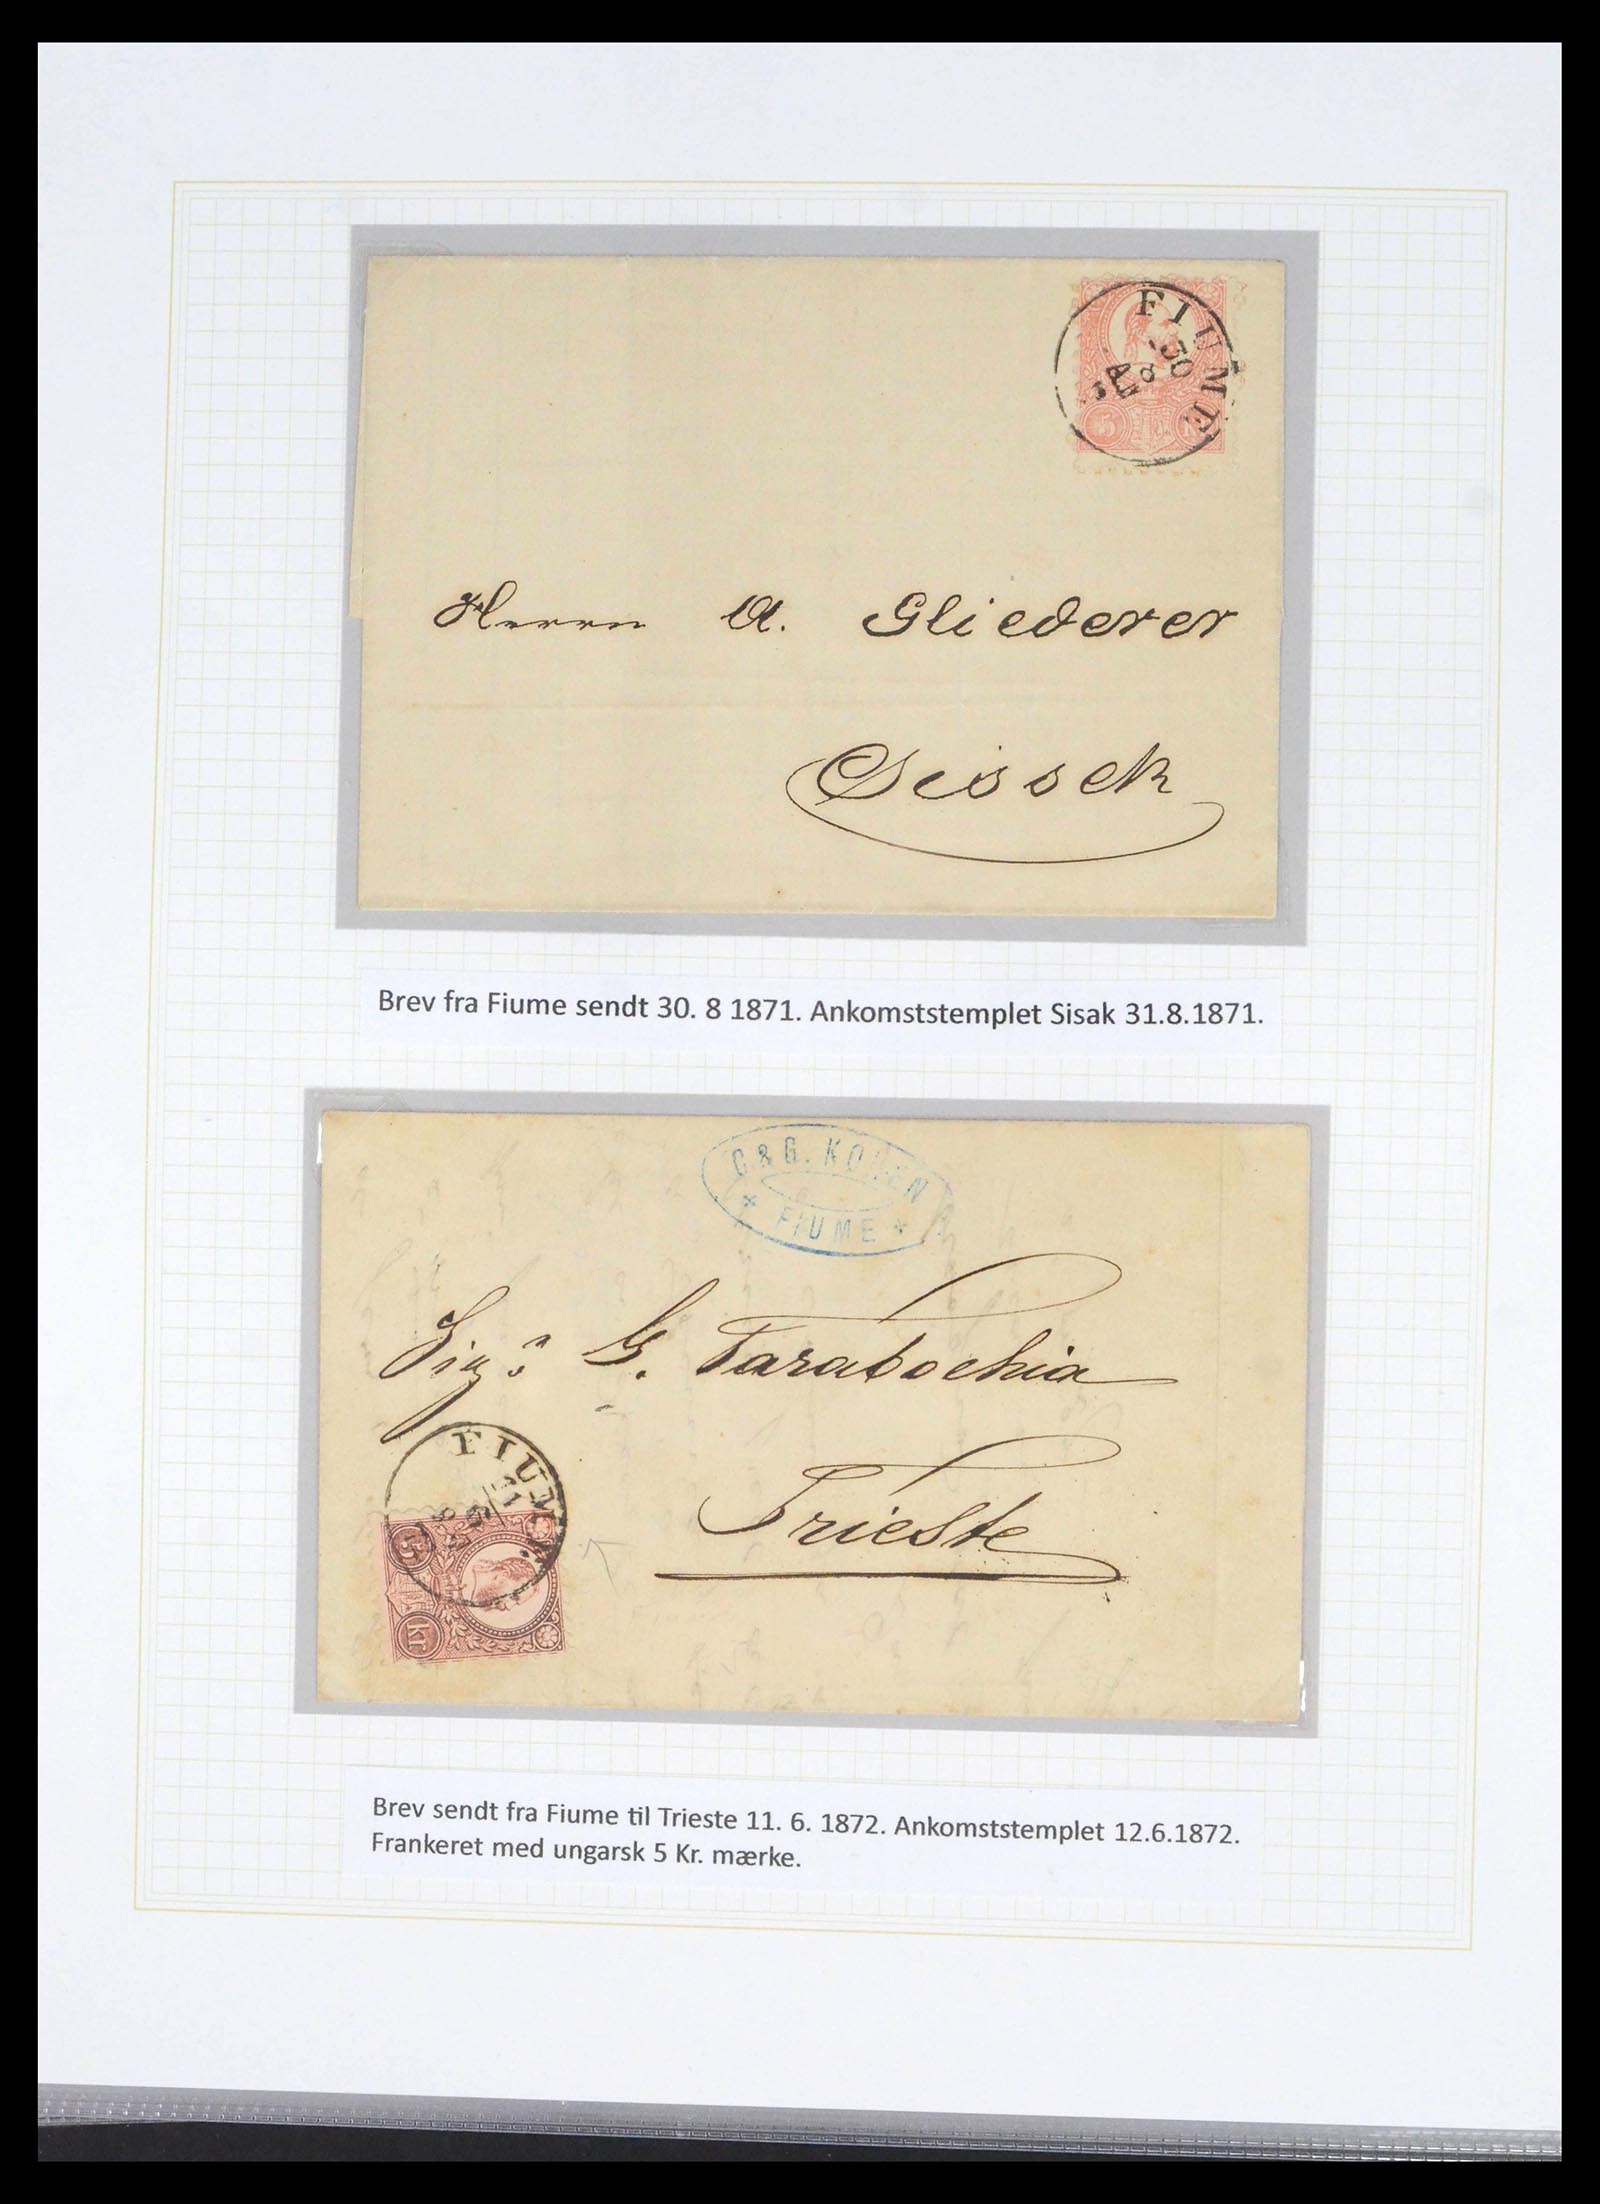 FIUME
30
8
5 Kr
Herrn A. Gliederer
Sissek
Brev fra Fiume sendt 30. 8 1871. Ankomststemplet Sisak 31.8.1871.
& G.
* FIUME *
Sigr G. Tarabochia
FIUME
11
Trieste
5 kr
Brev sendt fra Fiume til Trieste 11. 6. 1872. Ankomststemplet 12.6.1872.
Frankeret med ungarsk 5 Kr. mærke.